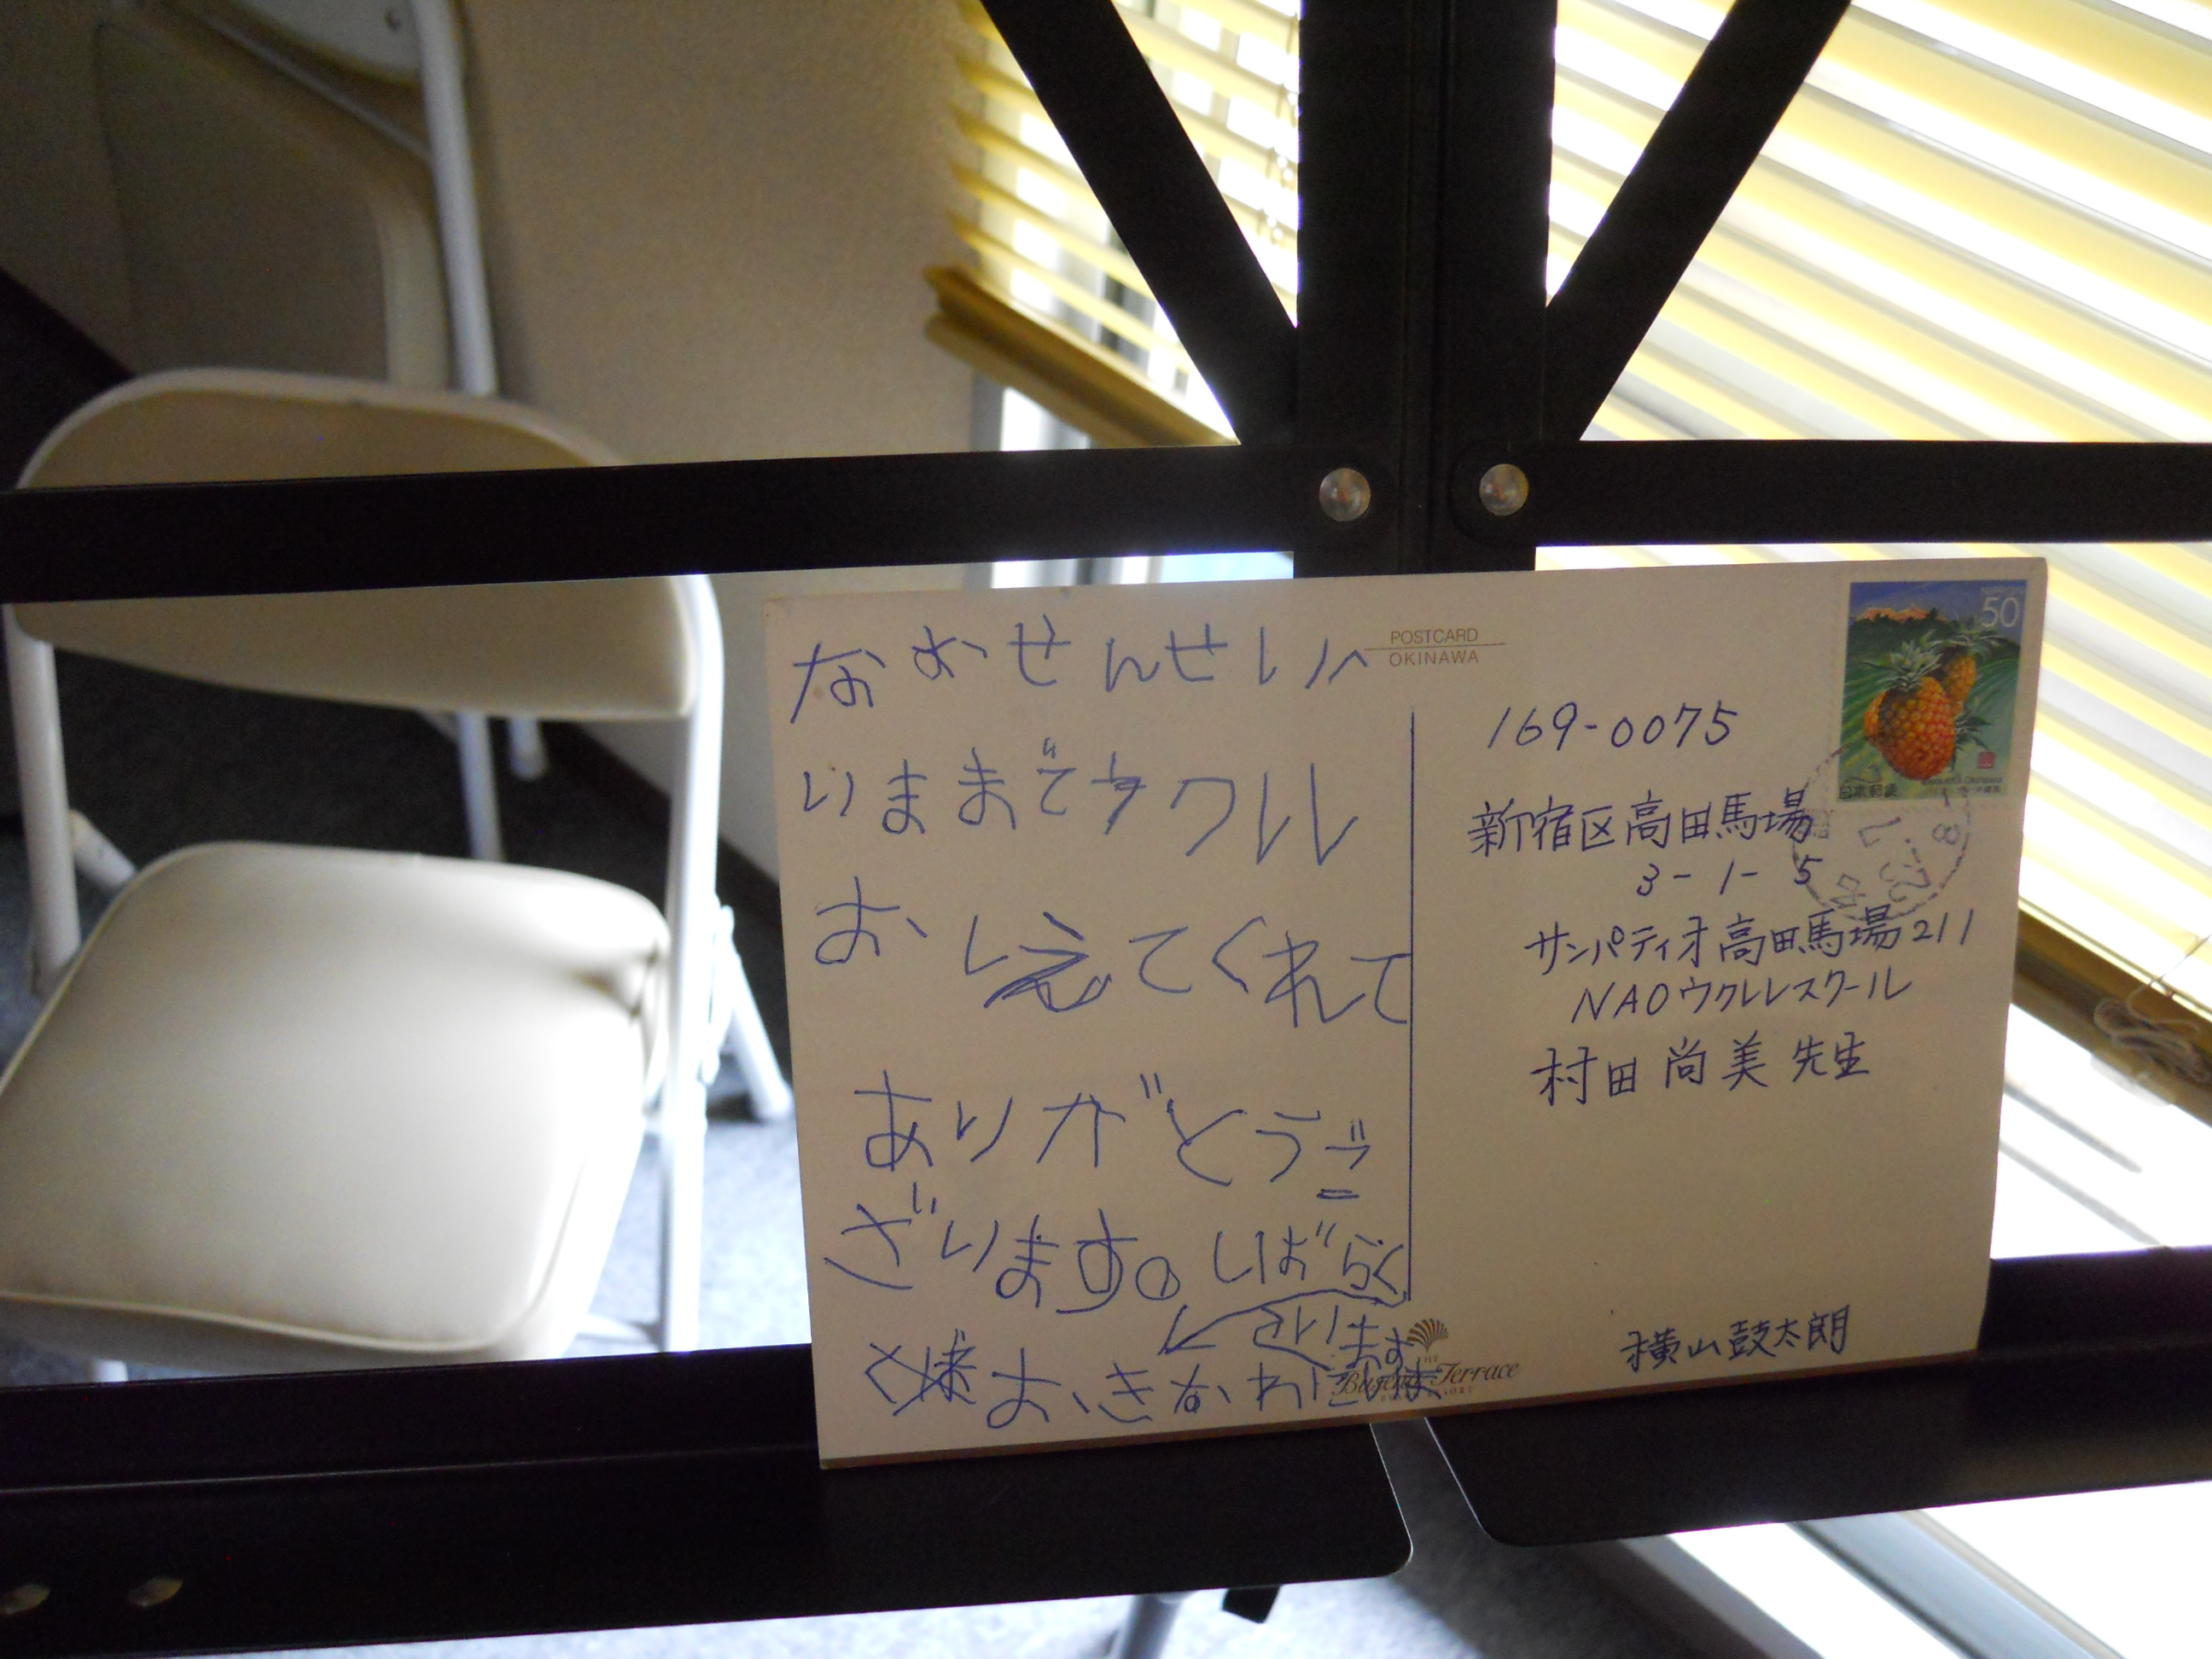 なおせんせいへ
いままでウクレレ
おしえてくれて
ありがとうご
ざいます。しばらく
おきなわに
います
POSTCARD
OKINAWA
50
日本郵便
169-0075
新宿区高田馬場
3-1-5
サンパティオ高田馬場211
NAOウクレレスクール
村田尚美先生
横山鼓太朗
THE
Busena Terrace